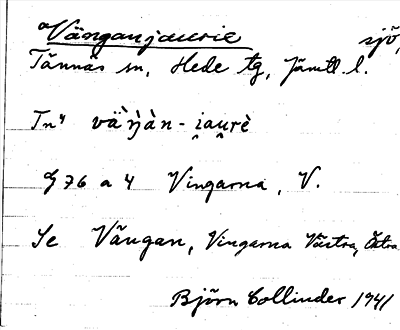 Vänganjaurie sjö,
Tännäs sn, Hede tg, Jämtl l.
Tnⁿ vä̀ŋàn-i̯au̯rè
G 76 a 4 Vingarna, V.
Se Vängan, Vingarna Västra, Östra
Björn Collinder 1941